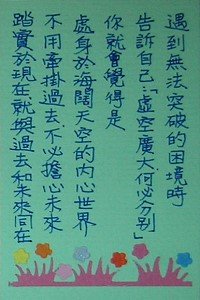 遇到無法突破的困境時
告訴自己:「虛空廣大何必分別」
你就會覺得是
處身於海闊天空的內心世界
不用牽掛過去不必擔心未來
踏實於現在就與過去和未來同在